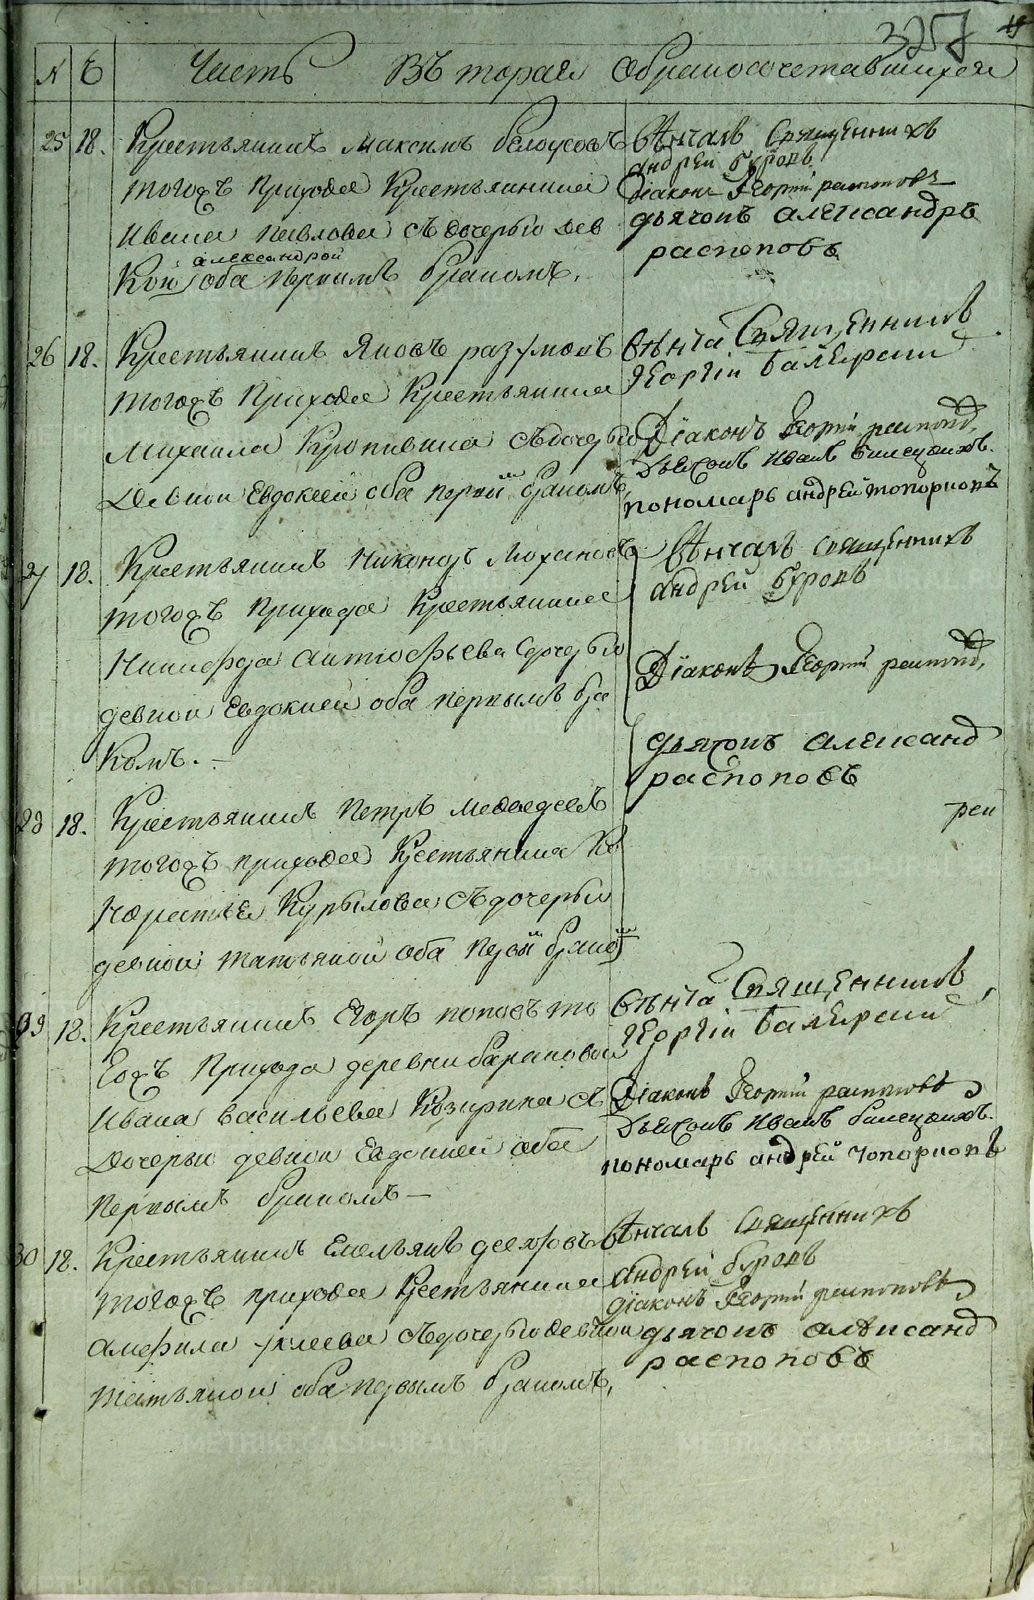 325
N Ч Часть Вторая О бракосочетавшихся
25 18. Крестьянинъ Максимъ Белоусовъ
тогожъ прихода Крестьянина
Ивана Павлова съ дочерью дев
александрой
кой оба первымъ бракомъ.
Вѣнчалъ Священникъ
андрей буровъ
діаконъ Георгій распоповъ
дьячокъ александръ
распоповъ
26 18. Крестьянинъ Яковъ разумовъ
тогожъ прихода Крестьянина
Михаила Кропивина съ дочерью
девкой Евдокеей оба первы бракомъ
вѣнча Священникъ
Георгіи
Діаконъ Георгій распоп
дьячокъ Иванъ
пономарь андрей топорковъ
27 18. Крестьянинъ Никоноръ Мохановъ
тогожъ прихода Крестьянина
Никифора антиофьева съ дочерью
девкой Евдокией оба первымъ бра
комъ.
Вѣнчалъ священникъ
андрей буровъ
Діаконъ Георгій распоп
дьячокъ александ
распоповъ
28 18. Крестьянинъ Петръ Медведевъ
тогожъ прихода Крестьянина Ко
Курылова съ дочерью
девкой татьяной оба первы брако
рен
29 18. Крестьянинъ Егоръ поповъ то
гожъ прихода деревни барановой
Ивана васильева Козирина съ
дочерью девкой Евдокией оба
первымъ бракомъ
вѣнча Священникъ
Георгіи
Діаконъ Георгій распоповъ
дьячокъ Иванъ
пономарь андрей топорковъ
30 18. Крестьянинъ Емельянъ
тогожъ прихода Крестьянина
съ дочерью девкой
татьяной оба первымъ бракомъ,
Вѣнчалъ священникъ
андрей буровъ
діаконъ Георгій распоповъ
дьячокъ александ
распоповъ
METRIKI.GASO-URAL.RU